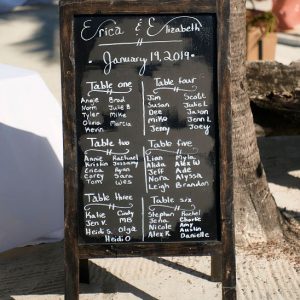 Erica & Elizabeth
January 19, 2019
Table one
Angie Brad
Horn Julie B
Tyler Mike
Olivia Marcia
Kevin
Table two
Annie Rachael
Kristin Jeremy
Erica Ryan
Corey Sara
Tom Wes
Table three
Katie Cindy
Jen V. MB
Heidi S. Olga
Heidi O
Table four
Jim Scott
Susan Julie L
Dee Jason
Mike Jenn L
Jenny Joey
Table five
Lian Myla
Alida Alex W
Jeff Ade
Nora Alyssa
Leigh Brandon
Table six
Stephan Rachel
Jena Charlie
Nicole Austin
Alex K Danielle